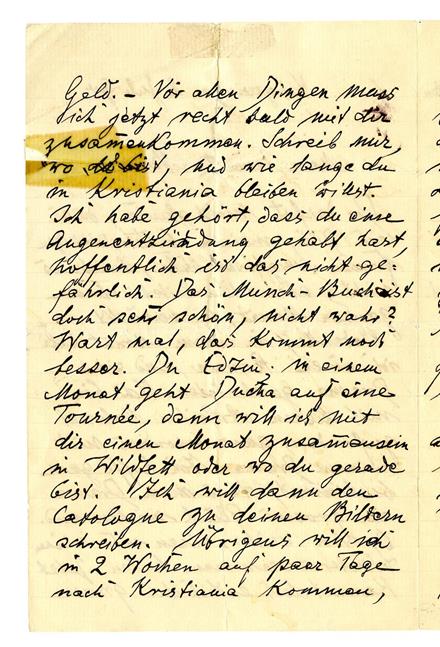 Geld. – Vor allen Dingen muss
ich jetzt recht bald mit dir
zusam̄enkommen. Schreib mir,
wo du bist, und wie lange du
in Kristiania bleiben willst.
Ich habe gehört, dass du eine
Augenentzündung gehabt hast,
hoffentlich ist das nicht ge-
fährlich. Das Munch-Buch ist
doch sehr schön, nicht wahr?
Wart mal, das kommt noch
besser. Du Edzin, in einem
Monat geht Ducha auf eine
Tournée, dann will ich mit
dir einen Monat zusam̄ensein
in oder wo du gerade
bist. Ich will dann den
Catologue zu deinen Bildern
schreiben. Übrigens will ich
in 2 Wochen auf paar Tage
nach Kristiania kommen,